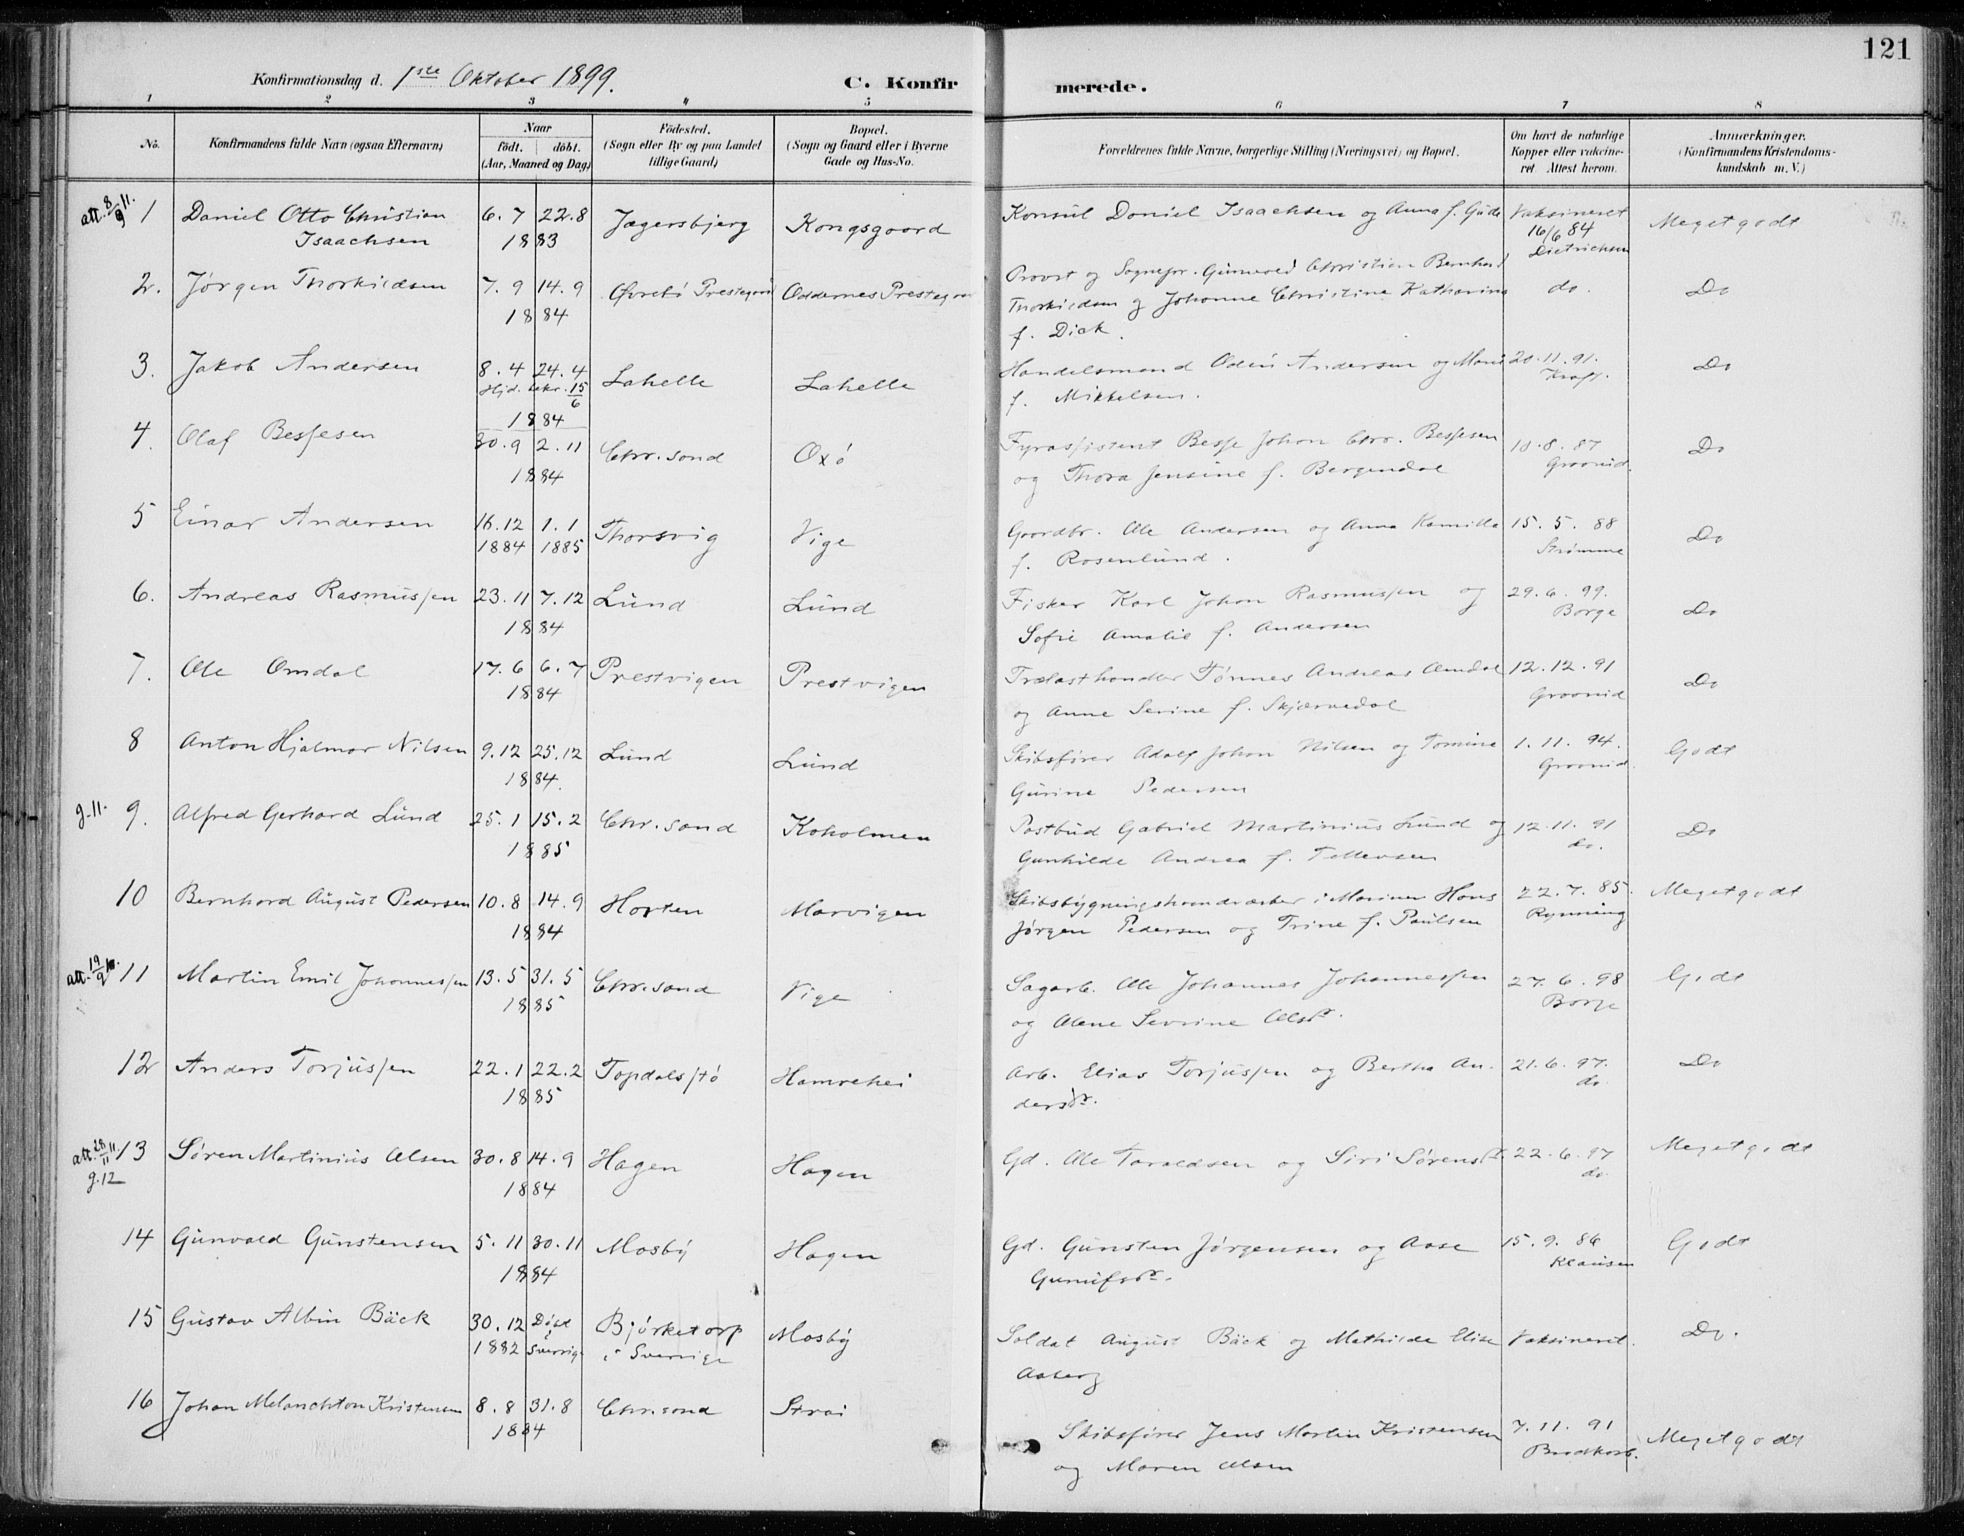 121
Konfirmationsdag d. 1ste Oktober 1899.
C. Konfirmerede.
1 2 3 4 5 6 7 8
No.
Konfirmandens fulde Navn (ogsaa Efternavn)
Naar
födt. döbt.
(Aar, Maaned og Dag)
Födested.
(Sogn eller By og paa Landet
tillige Gaard)
Bopæl.
(Sogn og Gaard eller i Byerne
Gade og Hus-No.
Forældrenes fulde Navne, borgerlige Stilling (Næringsvei) og Bopæl.
Om havt de naturlige
Kopper eller vakcine-
ret. Attest herom.
Anmærkninger.
(Konfirmandens Kristendoms-
kundskab m. V.)
att. 8/9 11. 1 Daniel Otto Christian 6. 7 22. 8 Jægersbjerg Kongsgaard Konsul Daniel Isaachsen og Anna f. Gude Vaksineret Meget godt
Isaachsen 1883 16/6 84
Dietrichson
2. Jørgen Thorkildsen 7. 9 14. 9 Øvrebö Prestegaard Oddernes Prestegaard Provst og Sognepr. Gunvald Christian Bernhard do. Do
1884 Thorkildsen og Johanne Christine Katharina
f. Dick.
3. Jakob Andersen 8. 4 24. 4 Lahelle Lahelle Handelsmand Odin Andersen og Marie 20. 11. 91. Do
Hjd. bekr. 15/6 f. Mikkelsen. Kraft.
1884
4. Olaf Bessesen 30. 9 2. 11 Chr. sand Oxö Fyrassistent Besse Johan Chr. Bessesen 10. 8. 87 Do
1884 og Thora Jensine f. Bergendal Graanid.
5 Einar Andersen 16. 12 1. 1 Thorsvig Vige Gaardbr. Ole Andersen og Anna Kamilla 15. 5. 88 Do
1884 1885 f. Rosenlund. Strømme
6. Andreas Rasmussen 23. 11 7. 12 Lund Lund Fisker Karl Johan Rasmussen og 29. 6. 99. Do
1884 Sofie Amalie f. Andersen Borge
7. Ole Omdal 17. 6 6. 7 Prestvigen Prestvigen Trælasthandler Tönnes Andreas Omdal 12. 12. 91 Do
1884 og Anne Serine f. Skjævedal Graanid
8 Anton Hjalmar Nilsen 9. 12 25. 12 Lund Lund Skibsfører Adolf Johan Nilsen og Tomine 1. 11. 94. Godt
1884. Gurine Pedersen Graanid.
g. 11. 9. Alfred Gerhard Lund 25. 1 15. 2 Chr. sand Koholmen Postbud Gabriel Martinius Lund og 12. 11. 91 Do
1885 Gunhilde Andrea f. Tellevsen do.
10 Bernhard August Pedersen 10. 8 14. 9 Horten Marvigen Skibsbygningshaandværker i Marinen Hans 22. 7. 85. Meget godt
1884 Jørgen Pedersen og Trine f. Paulsen Rynning
att. 19/9 11 Martin Emil Johannessen 13. 5 31. 5 Chr. sand Vige Sagarb. Ole Johannes Johannessen 27. 6. 98 Godt
1885 og Alene Sevrine Olsdr. Borge
12 Anders Torjussen 22. 1 22. 2 Topdalsstö Hamrehei Arb. Elias Torjussen og Bertha An- 21. 6. 97. Do
1885 dersdr. do.
att. 28/11 11. 13 Søren Martinius Olsen 30. 8 14. 9 Hagen Hagen Gd. Ole Taraldsen og Siri Sørensdr. 22. 6. 97 Meget godt
g. 12 1884 do.
14 Gunvald Gunstensen 5. 11 30. 11 Mosby Hagen Gd. Gunsten Jørgensen og Aase 15. 9. 86 Godt
1884 Gunnufsdr. Klausen
15 Gustav Albin Bäck 30. 12 Döbt Bjørketorp Mosby Soldat August Bäck og Mathilde Elise Vaksineret. Do.
1882 i Sverrige i Sverrige Aaberg
16 Johan Melanchton Kristensen 8. 8 31. 8 Chr. sand Strai Skibsfører Jens Martin Kristensen 7. 11. 91 Meget godt
1884 og Maren Olsen Brodkorb.